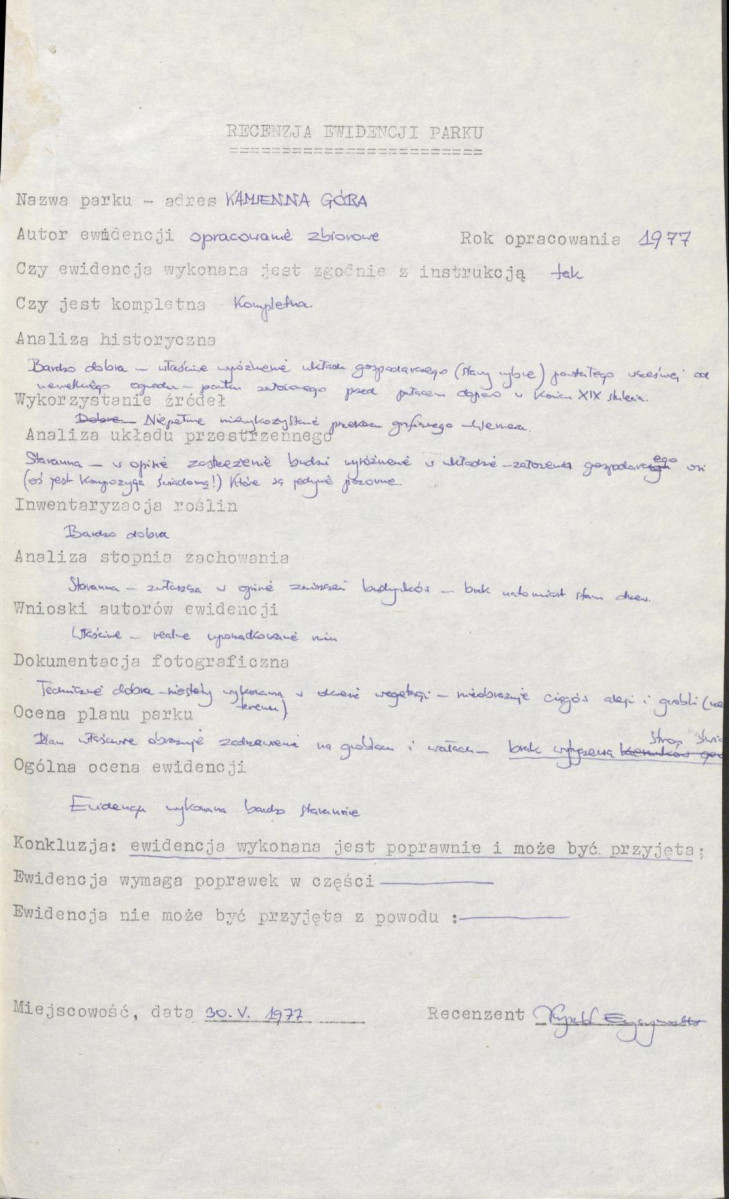 RECENZJA EWIDENCJI PARKU
========================
Nazwa parku - adres KAMIENNA GÓRA
Autor ewidencji opracowanie zbiorowe Rok opracowania 1977
Czy ewidencja wykonana jest zgodnie z instrukcją tak
Czy jest kompletna Kompletna
Analiza historyczna
Bardzo dobra - właściwe wyróżnienie układu gospodarczego (stawy rybne) powstałego wcześniej od
ogrodu - parku przed pałacem dopiero w końcu XIX stulecia.
Wykorzystanie źródeł
Dobre Niepełne niewykorzystane przekazu graficznego - Wernera.
Analiza układu przestrzennego
Staranna - w opinii zastrzeżenie budzi wyróżnienie w układzie - założenia gospodarczego osi
(oś jest kompozycją świadomą!) które są jedynie pozorne.
Inwentaryzacja roślin
Bardzo dobra
Analiza stopnia zachowania
Staranna - zwłaszcza w opinii zniszczeń budynków - brak natomiast stanu drzew.
Wnioski autorów ewidencji
Właściwe - realne uporządkowanie
Dokumentacja fotograficzna
Technicznie dobra - niestety wykonana w okresie wegetacji - nieobrazuje ciągów alei i grobli (
terenu)
Ocena planu parku
Plan właściwie obrazuje zadrzewienie na groblach i wałach - brak wyrysowania
stron
Ogólna ocena ewidencji
Ewidencja wykonana bardzo starannie
Konkluzja: ewidencja wykonana jest poprawnie i może być przyjęta;
Ewidencja wymaga poprawek w części
Ewidencja nie może być przyjęta z powodu :
Miejscowość, data 30.V. 1977 Recenzent